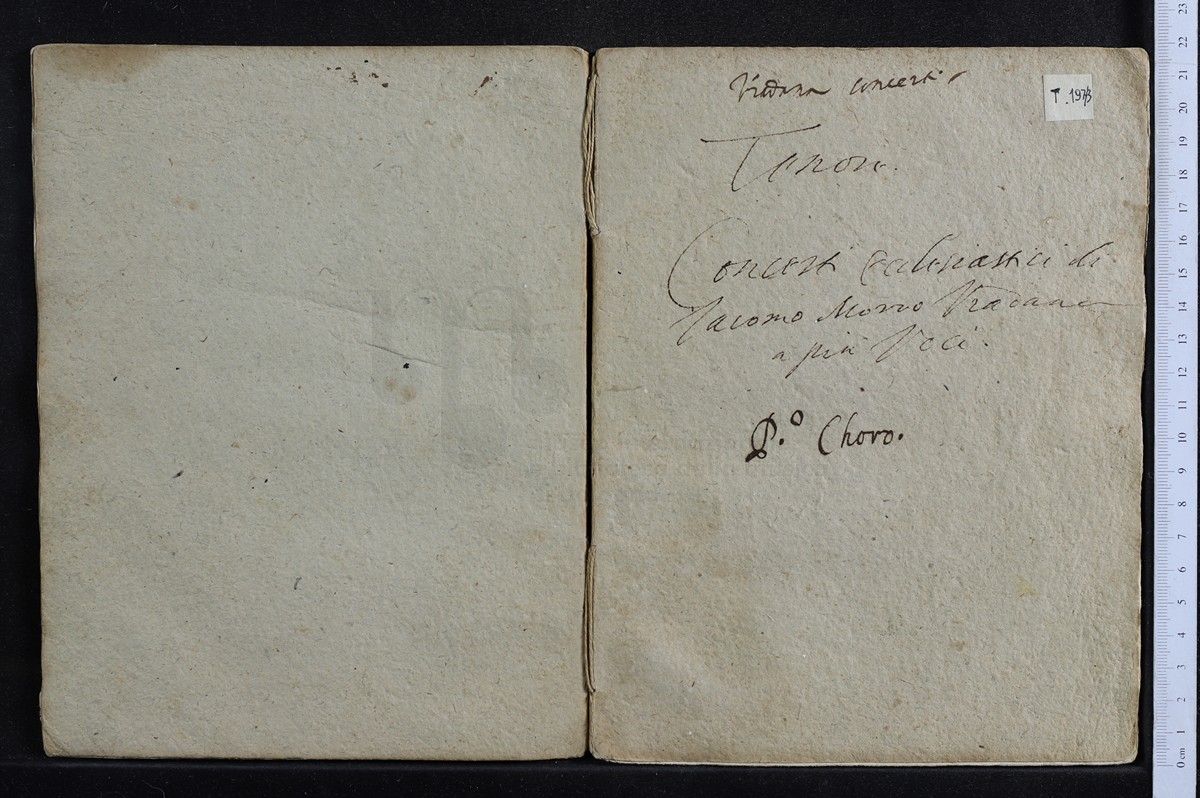 Viadana concerti
T. 1973
Tenore.
Concerti ecclesiastici di
Jacomo Moro Viadana
a più Voci.
P.º Choro.
0 cm 1 2 3 4 5 6 7 8 9 10 11 12 13 14 15 16 17 18 19 20 21 22 23